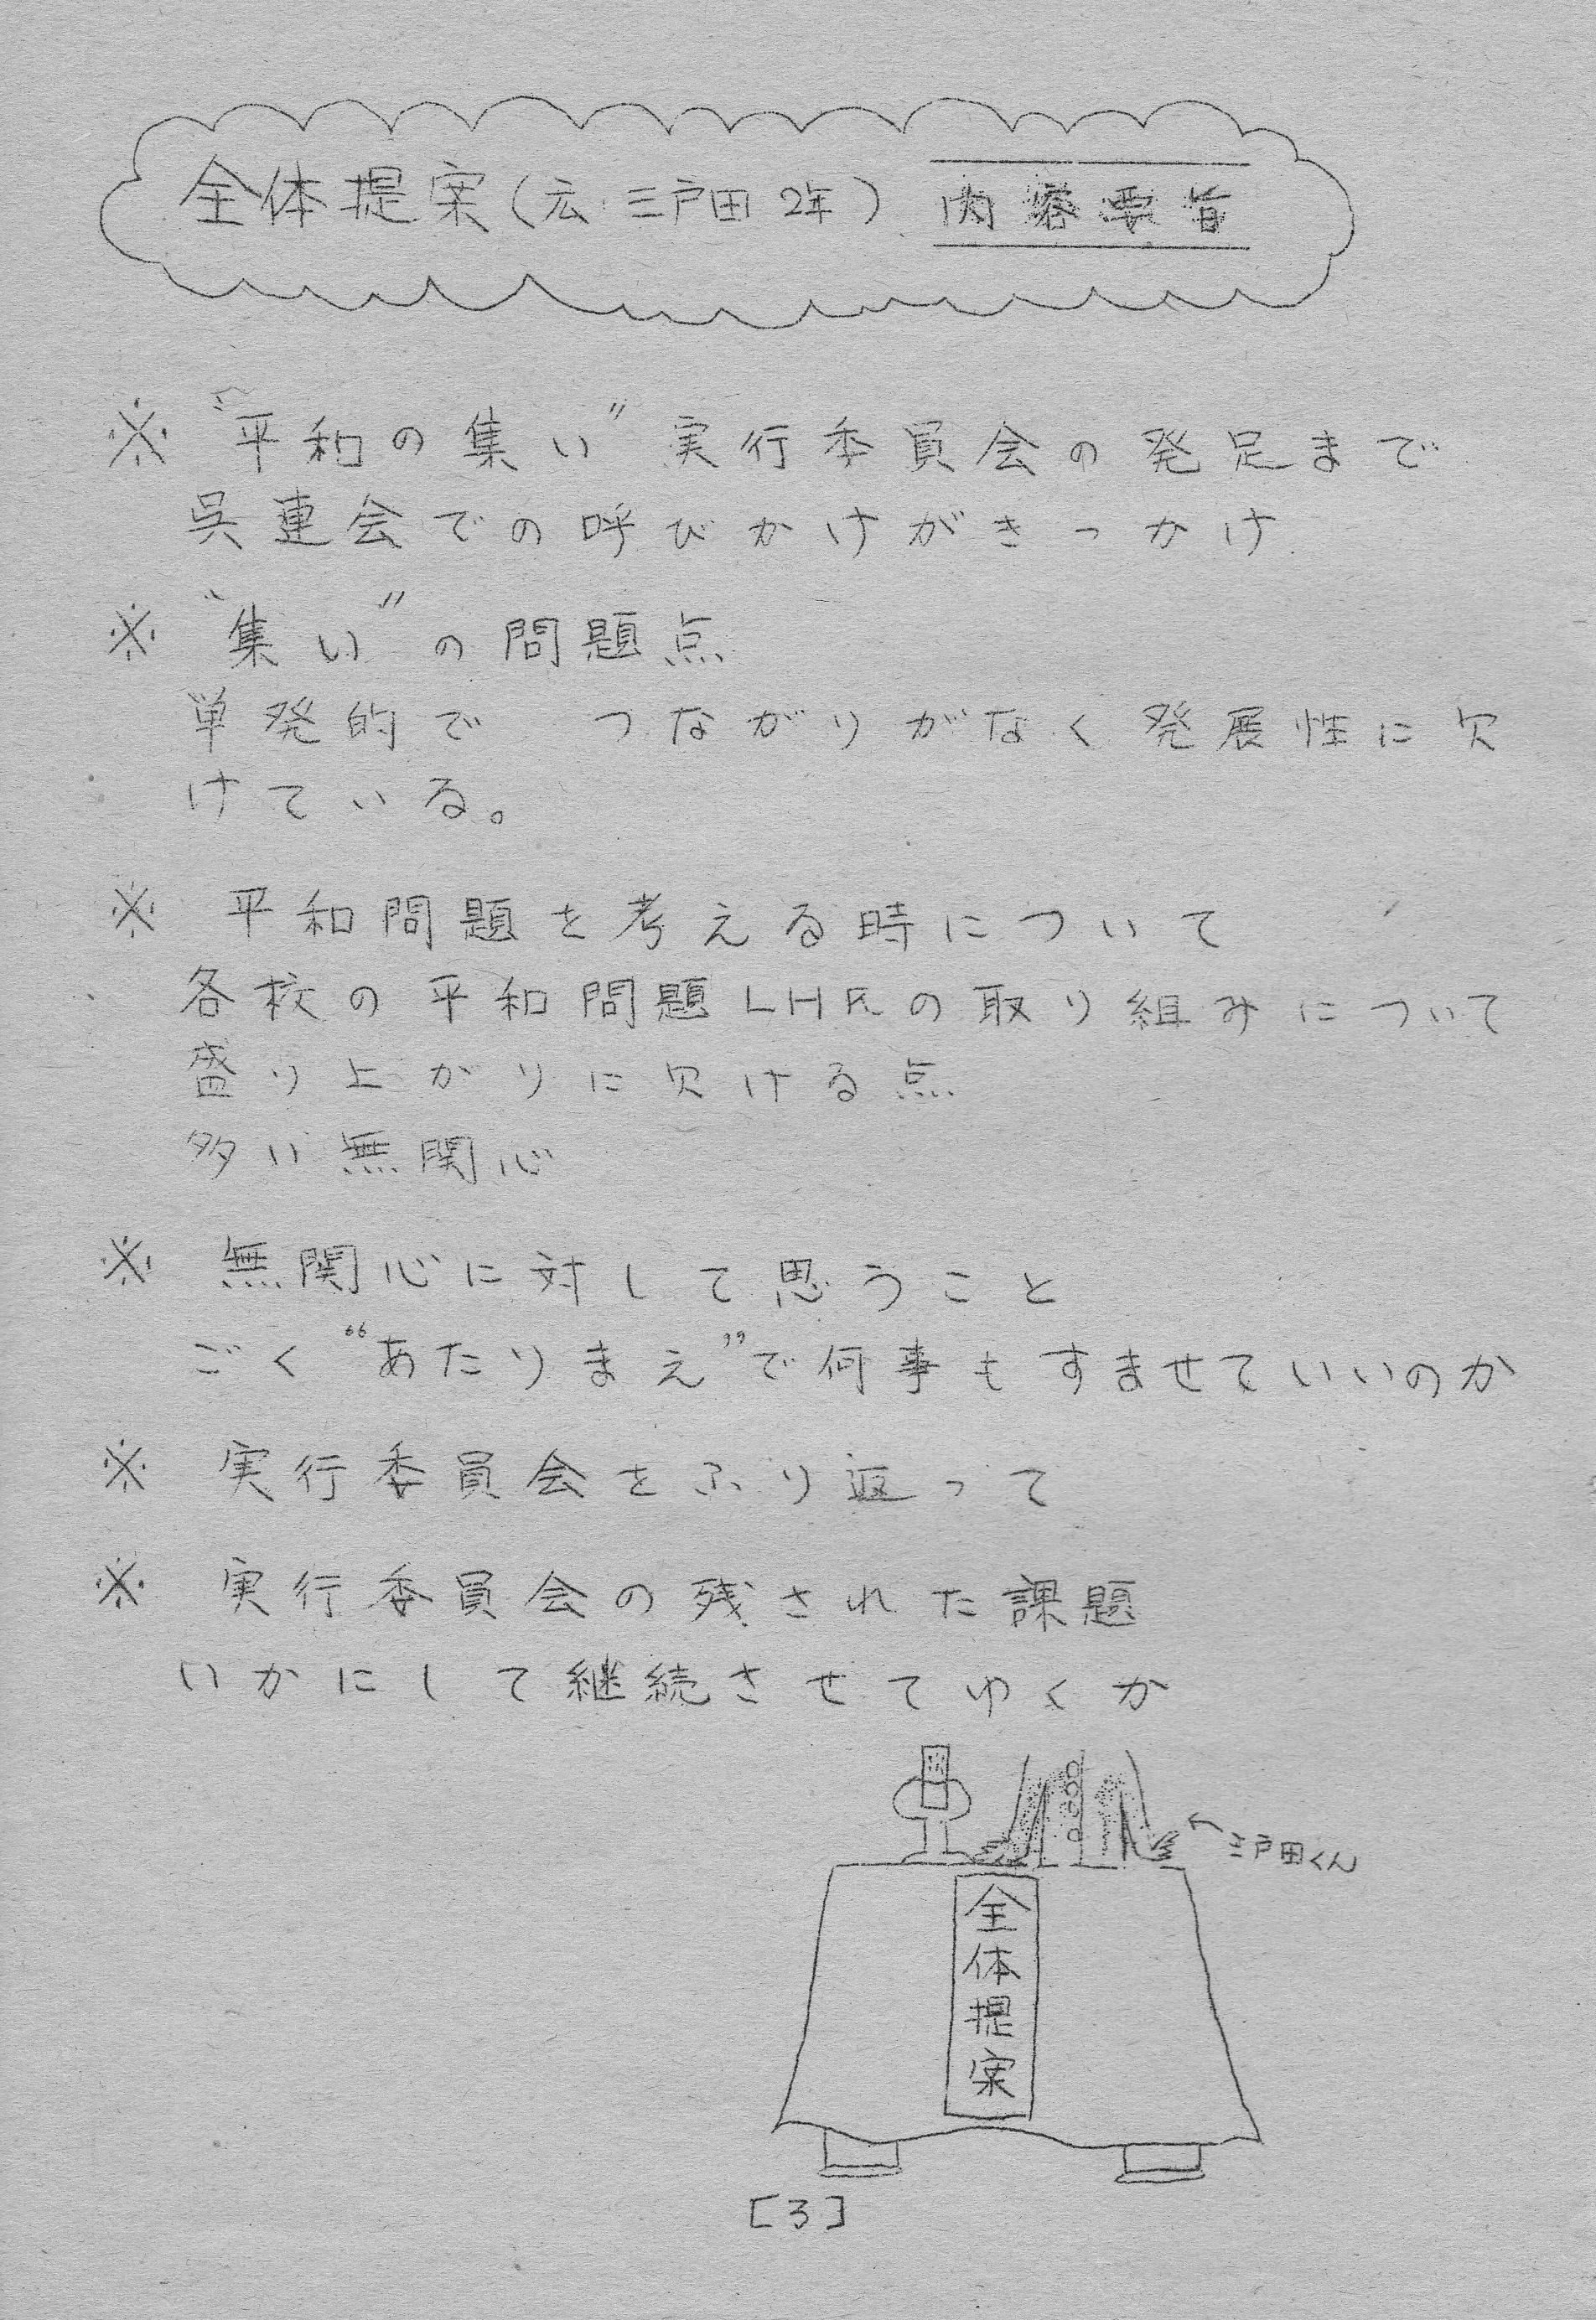 全体提案(広 三戸田 2年) 内容要旨
※ “平和の集い” 実行委員会の発足まで
呉連会での呼びかけがきっかけ
※ “集い”の問題点
単発的で つながりがなく発展性に欠
けている。
※ 平和問題を考える時について
各校の平和問題LHRの取り組みについて
盛り上がりに欠ける点
多い無関心
※ 無関心に対して思うこと
ごく“あたりまえ”で何事もすませていいのか
※ 実行委員会をふり返って
※ 実行委員会の残された課題
いかにして継続させてゆくか
←三戸田くん
全体提案
[3]